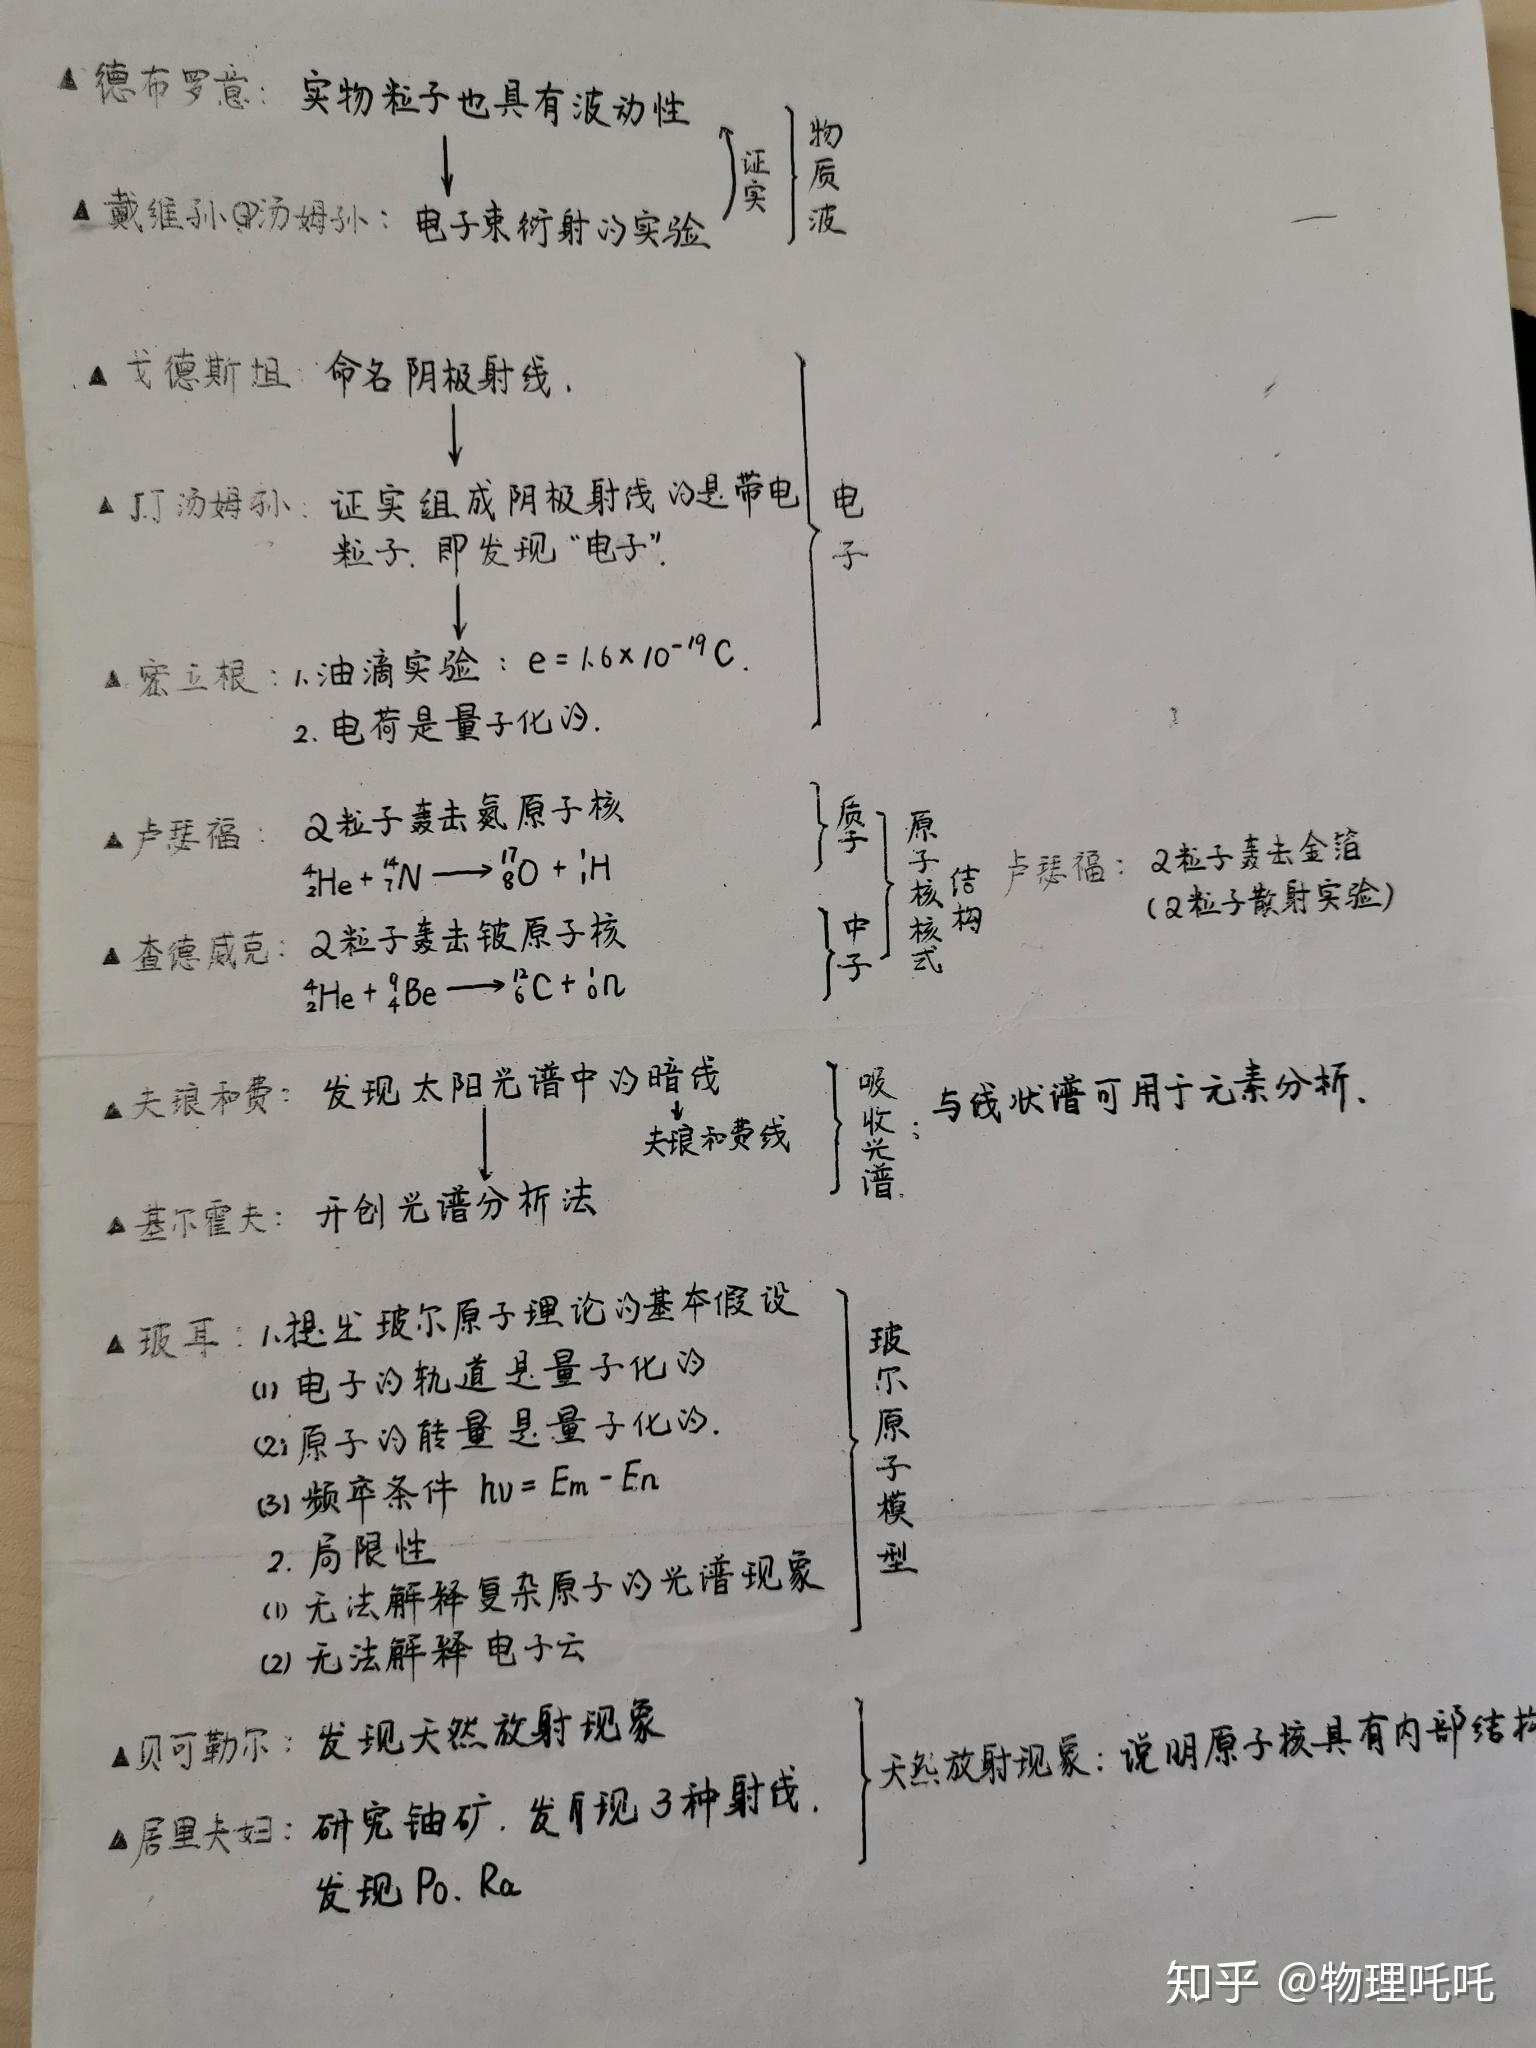 ▲德布罗意: 实物粒子也具有波动性
证实
物质波
▲戴维孙 汤姆孙: 电子束衍射的实验
▲戈德斯坦: 命名阴极射线.
▲J.J汤姆孙: 证实组成阴极射线的是带电
粒子. 即发现“电子”.
电子
▲密立根: 1.油滴实验: e=1.6×10⁻¹⁹C.
2. 电荷是量子化的.
▲卢瑟福: α粒子轰击氮原子核
⁴₂He + ¹⁴₇N → ¹⁷₈O + ¹₁H
质子
▲查德威克: α粒子轰击铍原子核
⁴₂He + ⁹₄Be → ¹²₆C + ¹₀n
中子
原子核核式
结构
卢瑟福: α粒子轰击金箔
(α粒子散射实验)
▲夫琅和费: 发现太阳光谱中的暗线
夫琅和费线
吸收光谱.
; 与线状谱可用于元素分析.
▲基尔霍夫: 开创光谱分析法
▲玻耳: 1.提出玻尔原子理论的基本假设
(1) 电子的轨道是量子化的
(2) 原子的能量是量子化的.
(3) 频率条件 hν=Em-En
2. 局限性
(1) 无法解释复杂原子的光谱现象
(2) 无法解释电子云
玻尔原子模型
▲贝可勒尔: 发现天然放射现象
▲居里夫妇: 研究铀矿. 发现3种射线.
发现Po. Ra
天然放射现象: 说明原子核具有内部结构
知乎 @物理吒吒